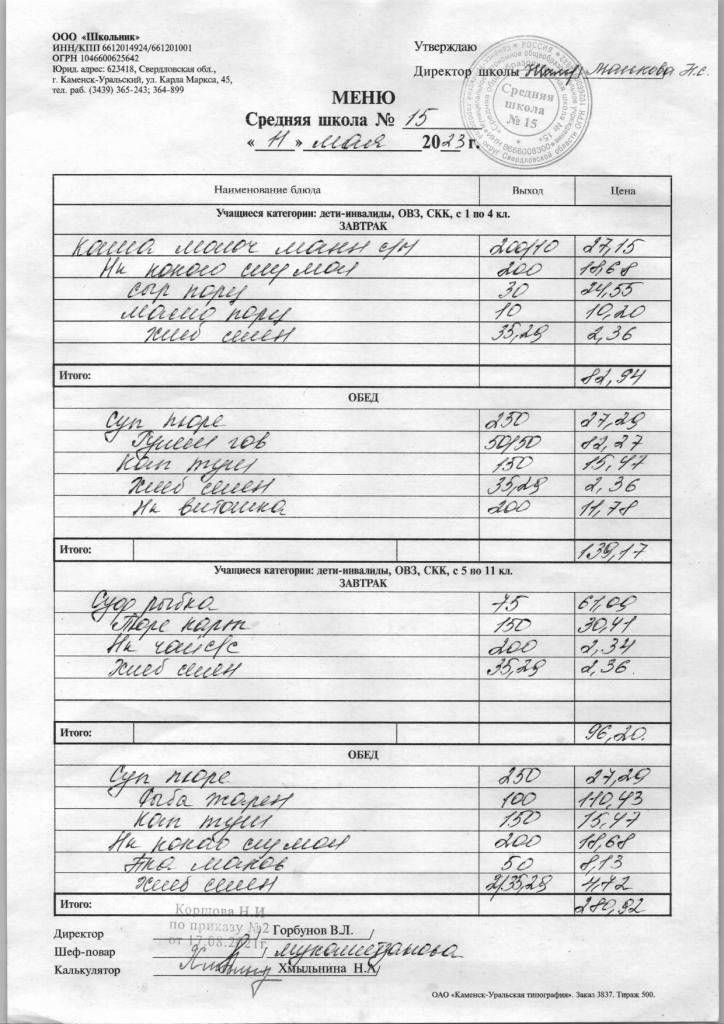 ООО «Школьник»
ИНН/КПП 6612014924/661201001
ОГРН 1046600625642
Юрид. адрес: 623418, Свердловская обл.,
г. Каменск-Уральский, ул. Карла Маркса, 45,
тел. раб. (3439) 365-243; 364-899
Утверждаю
Директор школы
Средняя школа № 15
МЕНЮ
Средняя школа № 15
« 11 » мая 2023 г.
Наименование блюда Выход Цена
Учащиеся категории: дети-инвалиды, ОВЗ, СКК, с 1 по 4 кл.
ЗАВТРАК
Каша молоч манн с/м 200/10 27,15
На какао сгу мол 200 18,68
Сыр порц 30 24,55
Масло порц 10 10,20
Хлеб семен 35,29 2,36
Итого: 82,94
ОБЕД
Суп пюре 250 27,29
Гуляш гов 50/50 82,27
Кап туш 150 15,47
Хлеб семен 35,29 2,36
На витошка 200 11,78
Итого: 139,17
Учащиеся категории: дети-инвалиды, ОВЗ, СКК, с 5 по 11 кл.
ЗАВТРАК
рыбка 75 61,09
Пюре карт 150 30,41
На чай с/с 200 2,34
Хлеб семен 35,29 2,36
Итого: 96,20
ОБЕД
Суп пюре 250 27,29
Рыба жарен 100 110,43
Кап туш 150 15,47
На какао сгу мол 200 18,68
маков 50 8,13
Хлеб семен 2/35,29 4,72
Итого: 280,92
Коршова Н.И
по приказу №2
от 17.08.2021г.
Директор / Горбунов В.Л. /
Шеф-повар
Калькулятор / Хмыльнина Н.Х/
ОАО «Каменск-Уральская типография». Заказ 3837. Тираж 500.